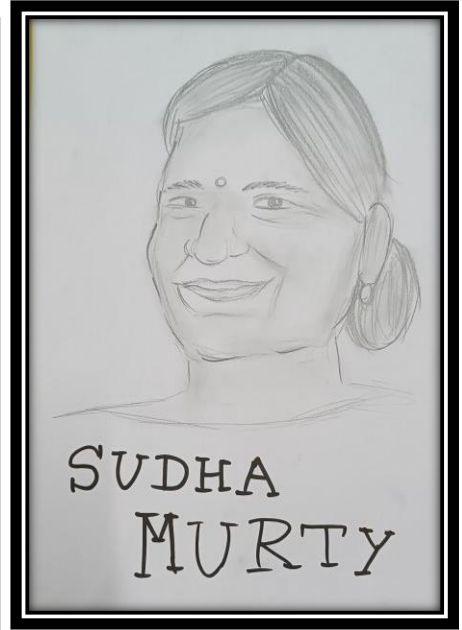 SUDHA
MURTY